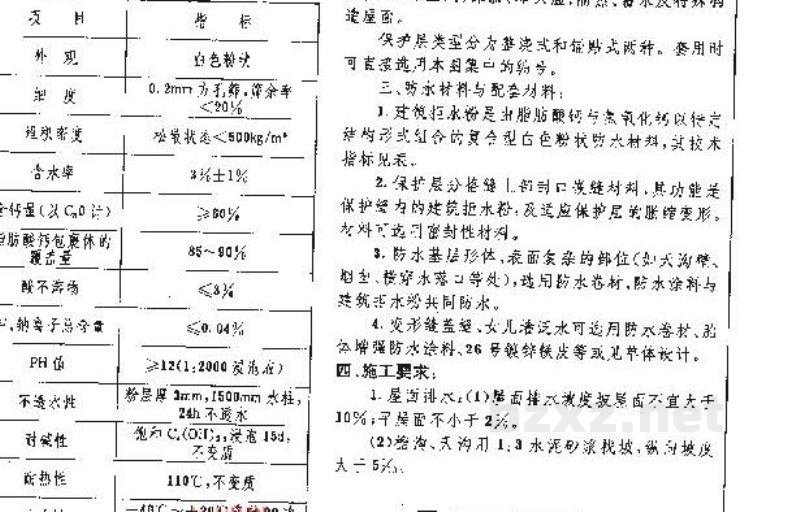 项 目 指 标
外 观 白色粉状
细 度 0.2mm方孔筛,筛余率
<20%
堆积密度 松散状态<500kg/m³
含水率 3%±1%
含钙量(以CaO计) ≥60%
脂肪酸钙包裹体的
覆盖量 85~90%
酸不溶物 ≤3%
钠离子总含量 ≤0.04%
PH值 ≥12(1:2000浸泡液)
不透水性 粉层厚3mm,1500mm水柱,
24h不透水
耐碱性 饱和Ca(OH)₂,浸泡15d,
不变质
耐热性 110℃,不变质
造屋面。
保护层类型分为整浇式和铺贴式两种。套用时
可直接选用本图集中的编号。
三、防水材料与配套材料:
1. 建筑拒水粉是由脂肪酸钙与氢氧化钙以特定
结构形式组合的复合型白色粉状防水材料,其技术
指标见表。
2. 保护层分格缝上的封口嵌缝材料,其功能是
保护缝内的建筑拒水粉,及适应保护层的胀缩变形。
材料可选用密封性材料。
3. 防水基层形体、表面复杂的部位(如天沟壁、
烟囱、横穿水落口等处),选用防水卷材,防水涂料与
建筑拒水粉共同防水。
4. 变形缝盖缝、女儿墙泛水可选用防水卷材、胎
体增强防水涂料、26号镀锌铁皮等或见单体设计。
四、施工要求:
1. 屋面排水:(1)屋面排水坡度坡屋面不宜大于
10%;平屋面不小于2%。
(2)檐沟、天沟用1:3水泥砂浆找坡,纵向坡度
大于5‰。